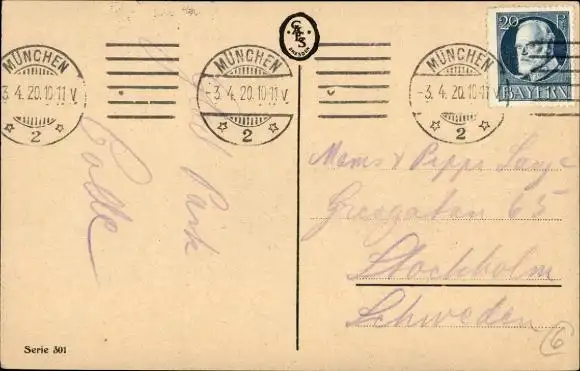 MÜNCHEN
-3.4.20.10-11V
2
MÜNCHEN
-3.4.20.10-11V
2
MÜNCHEN
-3.4.20.10-11V
2
20 Pf
BAYERN
DRESDEN
Park
Greegatan 65
Stockholm
Schweden
Serie 301
6